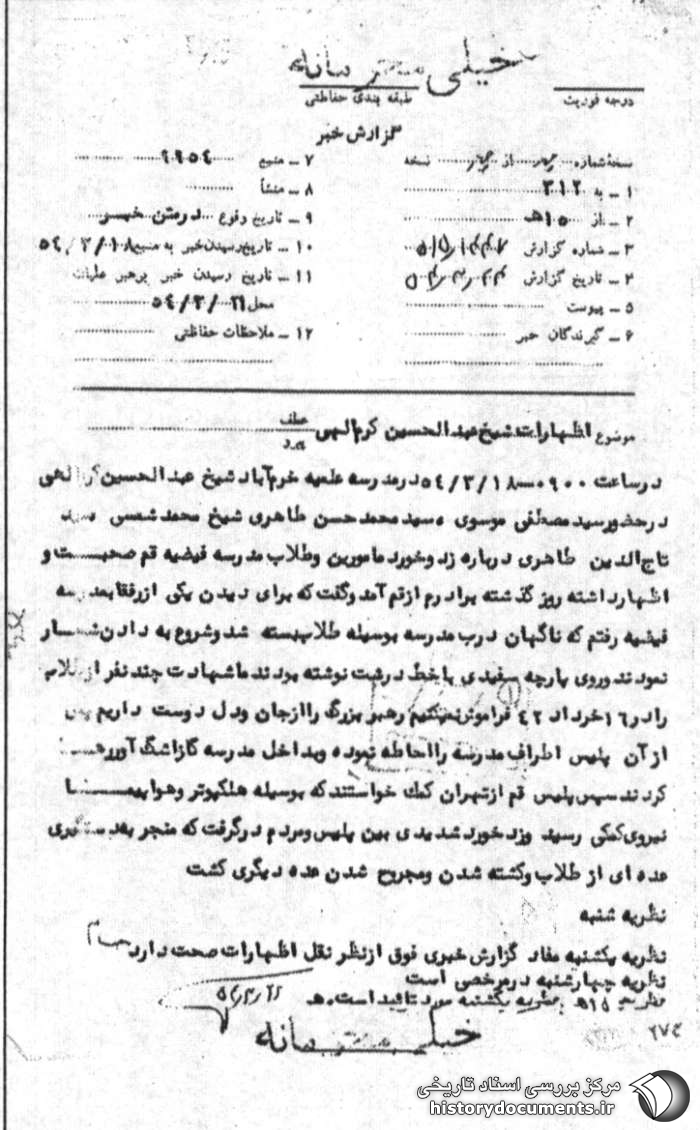 خیلی محرمانه
درجه فوریت
طبقه بندی حفاظتی
گزارش خبر
نسخه شماره از نسخه
۱ ــ به ۳۱۲
۲ ــ از ۱۵هـ
۳ ــ شماره گزارش
۴ ــ تاریخ گزارش
۵ ــ پیوست
۶ ــ گیرندگان خبر
۷ ــ منبع ۶۹۵۴
۸ ــ منشأ
۹ ــ تاریخ وقوع درمتن خبر
۱۰ ــ تاریخ رسیدن خبر به منبع ۵۴/۳/۱۸
۱۱ ــ تاریخ رسیدن خبر برهبر عملیات
محل ۵۴/۳/۲۱
۱۲ ــ ملاحظات حفاظتی
موضوع اظهارات شیخ عبدالحسین کرم الهی
عطف
پیرو
در ساعت ۰۹۰۰ ۵۴/۳/۱۸ در مدرسه علمیه خرم آباد شیخ عبدالحسین کرم الهی
در حضور سید مصطفی موسوی و سید محمد حسن طاهری شیخ محمد شمس سید
تاج الدین طاهری درباره زد و خورد مامورین و طلاب مدرسه فیضیه قم صحبت و
اظهار داشته روز گذشته برادرم از قم آمد و گفت که برای دیدن یکی از رفقا بمدرسه
فیضیه رفتم که ناگهان درب مدرسه بوسیله طلاب بسته شد و شروع به دادن شعار
نمودند و روی پارچه سفیدی با خط درشت نوشته بودند ما شهادت چند نفر از طلاب
را در ۱۶ خرداد ۴۲ فراموش نمیکنیم رهبر بزرگ را از جان و دل دوست داریم پس
از آن پلیس اطراف مدرسه را احاطه نموده و بداخل مدرسه گاز اشگ آور
کردند سپس پلیس قم از تهران کمک خواستند که بوسیله هلکوپتر و هواپیما
نیروی کمکی رسید و زد خورد شدیدی بین پلیس و مردم در گرفت که منجر به دستگیری
عده ای از طلاب و کشته شدن و مجروح شدن عده دیگری گشت
نظریه شنبه
نظریه یکشنبه مفاد گزارش خبری فوق از نظر نقل اظهارات صحت دارد
نظریه چهارشنبه در مرخصی است
نظریه ۱۵هـ نظریه یکشنبه مورد تائید است. هـ
خیلی محرمانه
۶۷۴
مرکز بررسی اسناد تاریخی
historydocuments.ir